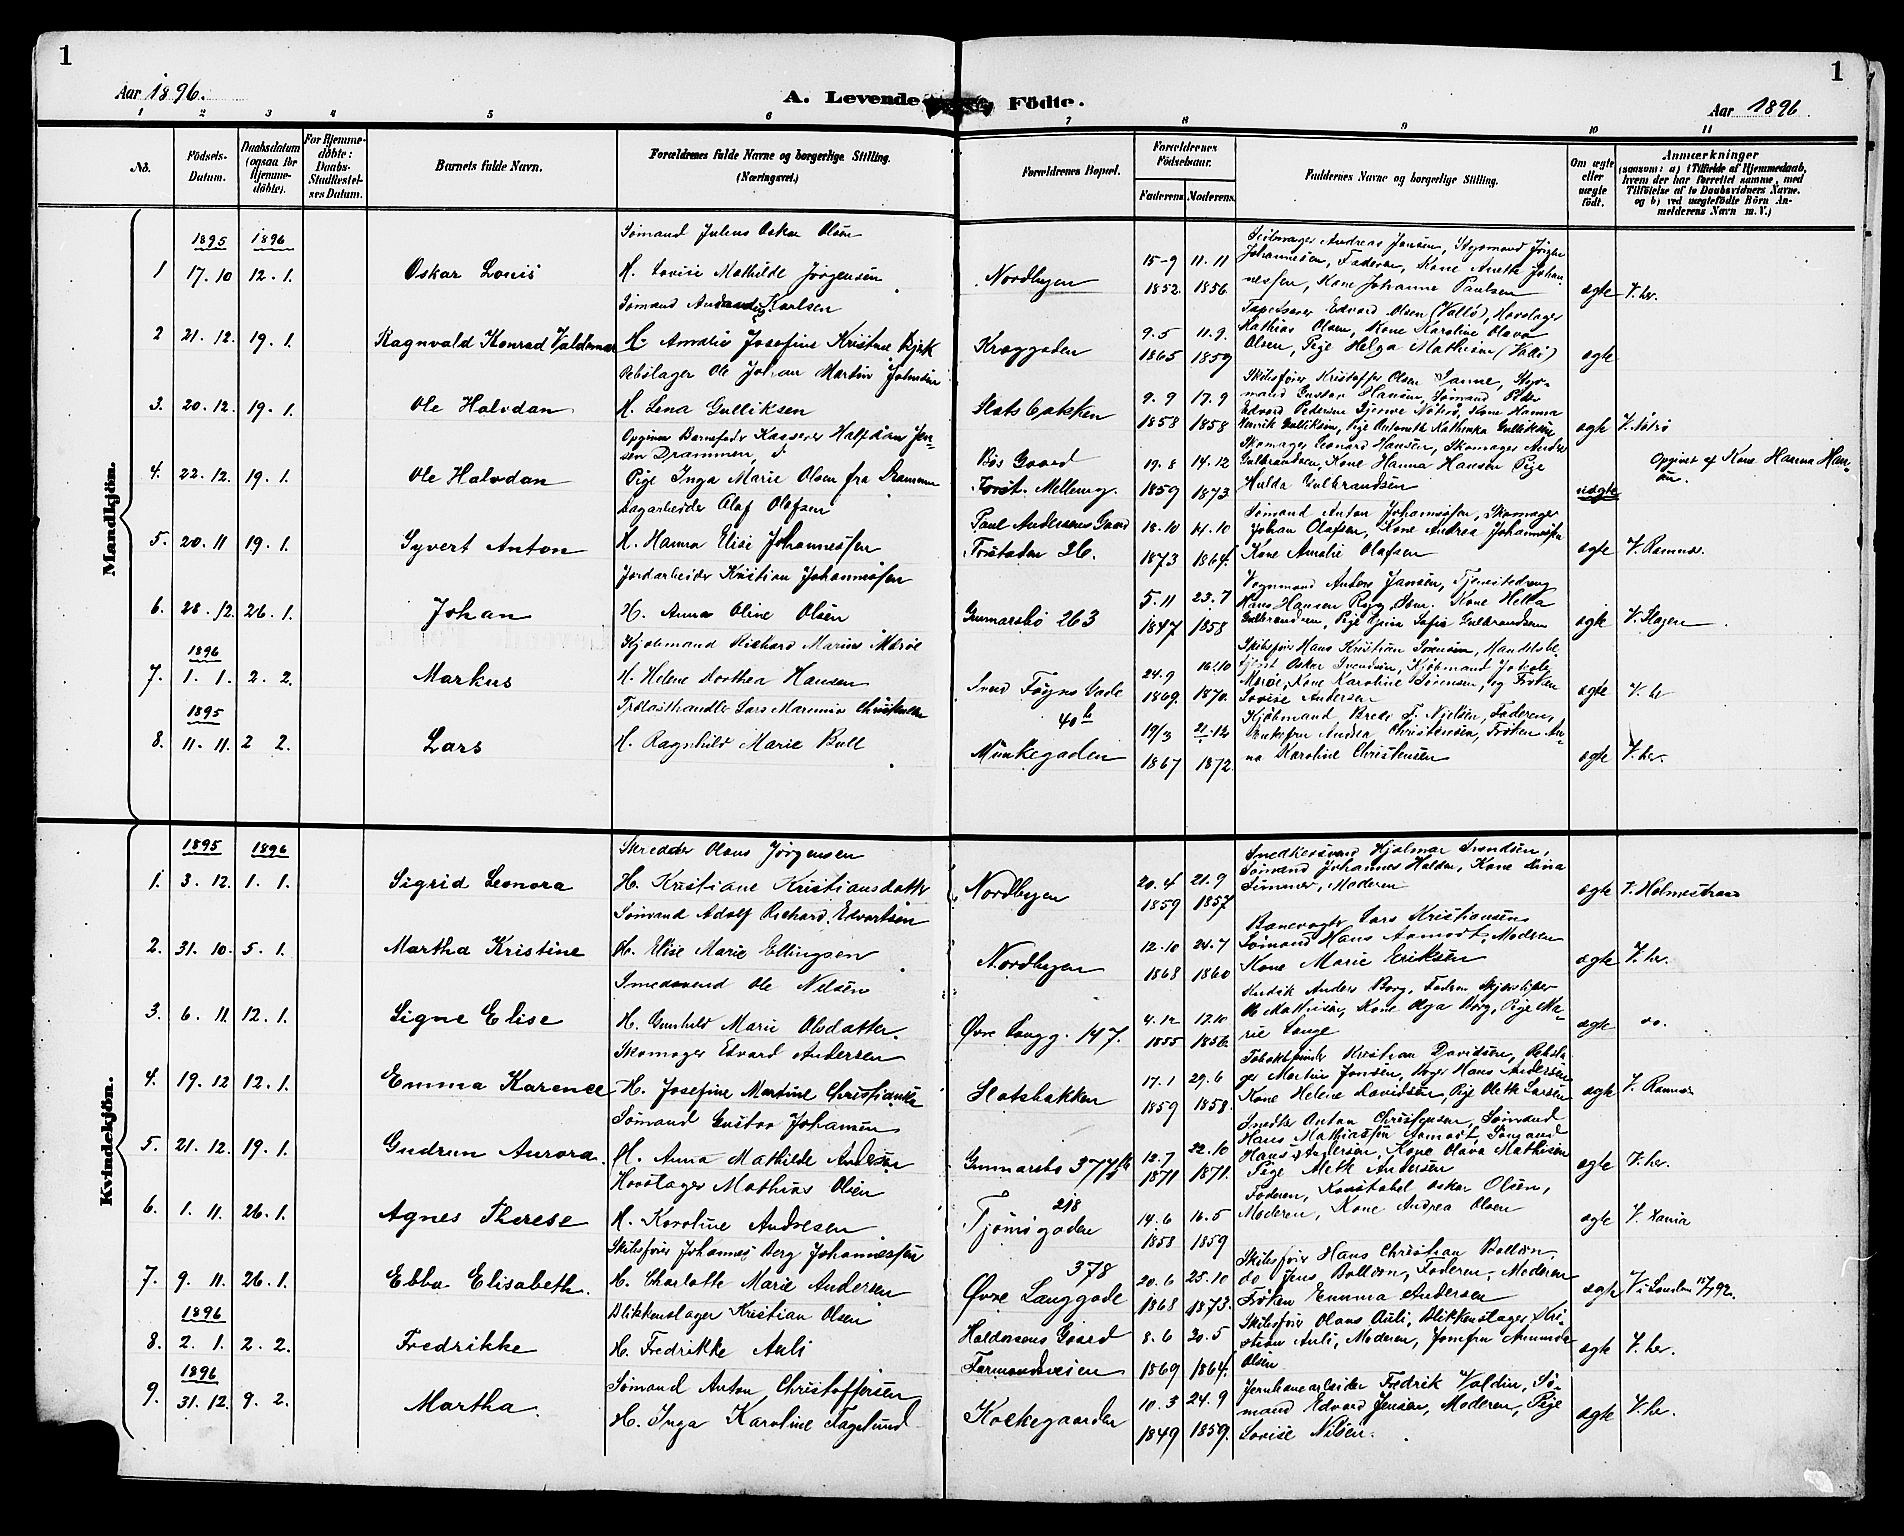 1
1
Aar 1896.
A. Levende Födte.
Aar 1896
1 2 3 4 5 6 7 8 9 10 11
No.
Födsels-Datum.
Daabsdatum (ogsaa for Hjemmedöbte).
For Hjemmedöbte: Daabs-Stadfæstelses Datum.
Barnets fulde Navn.
Forældrenes fulde Navne og borgerlige Stilling. (Næringsvei.)
Forældrenes Bopæl.
Forældrenes Födselsaar.
Faderens. Moderens.
Faddernes Navne og borgerlige Stilling.
Om ægte eller uægte födt.
Anmærkninger
(saasom: a) i Tilfælde af Hjemmedaab, hvem der har forrettet samme, med Tilföielse af to Daabsvidners Navne, og b) ved uægtefödte Börn Anmelderens Navn m. V.)
Mandkjön.
1895 1896
Sømand Julius Oskar Olsen
1 17. 10 12. 1. Oskar Louis
H. Lovise Mathilde Jørgensen
Nordbyen
15-9 11. 11
1852 1856.
Seilmager Andreas Jensen, Styrmand Jørgen
Johannesen, Faderen, Kone Anette Johan
nessen, Kone Johanne Paulsen
ægte V. her.
Sømand Karlsen
2 21. 12. 19. 1. Ragnvald Konrad Valdemar
H. Amalie Josefine Kristine Bjerk
Kroggaden
9. 5 11. 9.
1865 1859
Edvard Olsen (Vallø), Hovslager
Mathias Olsen, Kone Karoline Olava
Olsen, Pige Helga Mathisen (Vallø)
ægte
Rebslager Ole Johan Martin Johnsen
3. 20. 12. 19. 1. Ole Halvdan
H. Lena Gulliksen
Slotsbakken
9. 9 17. 9
1858 1858
Skibsfører Kristoffer Olsen Styr-
mand Gustav Hansen, Sømand Peter
Edvard Pedersen Nøterø, Kone Hanna
Henrik Gulliksen, Pige Antonette Kathinka Gulliksen
ægte
Opgiven Barnefader Kasserer Halfdan Jen-
sen Drammen,
4. 22. 12. 19. 1. Ole Halvdan
Pige Inga Marie Olsen fra Drammen
Bøs Gaard
Mellemg.
19. 8 14. 12
1859 1873
Skomager Leonard Hansen, Skomager Andr
Gulbrandsen, Kone Hanna Hansen Pige
Hulda Gulbrandsen
uægte
Opgivet af Kone Hanna Han-
sen.
Dagarbeider Olaf Olafsen
5. 20. 11 19. 1. Syvert Anton
H. Hanna Elise Johannessen
Paul Andersens Gaard
26.
18. 10 14. 10
1873 1864.
Sømand Anton Johannessen, Skomager
Johan Olafsen, Kone Andrea Johannessen
Kone Amalie Olafsen
ægte V. Ramnes.
Jordarbeider Kristian Johannessen
6. 28. 12. 26. 1. Johan
H. Anna Oline Olsen
Gunnarsbø 263
5. 11 23. 7
1847 1858
Vognmand Anders Jansen, Tjenestedreng
Hans Hansen Kone Helle
Gulbrandsen, Pige Sofie Gulbrandsen
ægte V. Slagen
1896
Kjøbmand Richard Marius Marøe
7. 1. 1. 2. 2. Markus
H. Helene Dorthea Hansen
Svend Føyns Gade
40 b
24. 9 16. 10
1869. 1870.
Skibsfører Hans Kristian Sørensen, Handelsbe-
tjent Oskar Svendsen, Kjøbmand
Marøe, Kone Karoline Sørensen, og Frøken
Lovise Andersen
ægte V. her
1895
Trælasthandler Lars Marenius Christensen
8. 11. 11. 2 2. Lars
H. Ragnhild Marie Bull
Munkegaden
19/3 21. 12
1867 1872.
Kjøbmand Brede F. Nielsen, Faderen,
Enkefru Andrea Christensen, Frøken An-
na Karoline Christensen
ægte V. her.
Kvindekjön.
1895 1896
Skredder Olaus Jørgensen
1. 3. 12. 1. 1. Sigrid Leonora
H. Kristiane Kristiansdatter
Nordbyen
20. 4 21. 9
1859 1857
Snedkersvend Hjalmar Svendsen,
Sømand Johannes Halden, Kone Lina
Simmer, Moderen
ægte V. Holmestrand
Sømand Adolf Richard Edvartsen
2. 31. 10. 5. 1. Martha Kristine
H. Elise Marie Ellingsen
Nordbyen
12. 10 24. 7
1868 1860
Banevogter Lars Kristiansen,
Sømand Hans Aamodt, Moderen
Kone Marie Eriksen
ægte V. her.
Smedsvend Ole Nilsen
3. 6. 11 12. 1. Signe Elise
H. Gunhild Marie Olsdatter
Øvre Langg. 147.
4. 12 12. 10
1855 1856.
Anders Borg, Faderen
Mathisen, Kone Olga Borg, Pige Ma-
rie Lange
ægte do.
Skomager Edvard Andersen
4. 19. 12 12. 1. Emma Karence
H. Josefine Martine Christiansen
Slotsbakken
17. 1 29. 6
1859 1858.
Kristian Davidsen, Rebsla
ger Martin Jensen, Hans Andersen
Kone Helene Davidsen, Pige Olette Larsen
ægte V. Ramnes
Sømand Gustav Johansen
5. 21. 12. 19. 1. Gudrun Aurora.
H. Anna Mathilde Andersen
Gunnarsbø 377
12. 7 22. 10
1871 1871.
Smed Anton Christensen, Sømand
Hans Mathiassen Aamodt, Sømand
Hans Andersen, Kone Olava Mathisen
Pige Mette Andersen
ægte V. her.
Hovslager Mathias Olsen
6. 1. 11. 26. 1. Agnes Therese
H. Karoline Andresen
218
Tjømegaden
14. 6 16. 5
1858 1859
Faderen, Konstabel Oskar Olsen,
Moderen, Kone Andrea Olsen
ægte V. Xania
Skibsfører Johannes Berg Johannessen
7. 9. 11. 26. 1. Ebba Elisabeth.
H. Charlotte Marie Andersen
378
Øvre Langgade
20. 6 25. 10
1868 1873.
Skibsfører Hans Christian Bolldøn,
do Jens Bolldøn, Faderen, Moderen
Frøken Emma Andersen
ægte V. i London
1896
Blikkenslager Kristian Olsen
8. 2. 1. 2. 2. Fredrikke
H. Fredrikke Auli
Haldorsens Gaard
Farmandsveien
8. 6 20. 5
1869 1864.
Skibsfører Olaus Auli, Blikkenslager Kri-
stian Auli, Moderen, Jomfru Amunda
Olsen
ægte V. her.
1896
Sømand Anton Christoffersen
9. 31. 12. 9. 2. Martha.
H. Inga Karoline Fagelund
Kokkegaarden
10. 3 24. 9
1849 1859.
Jernbanearbeider Fredrik Valdin, Sø-
mand Edvard Jensen, Moderen, Pige
Lovise Nilsen.
ægte V. her.